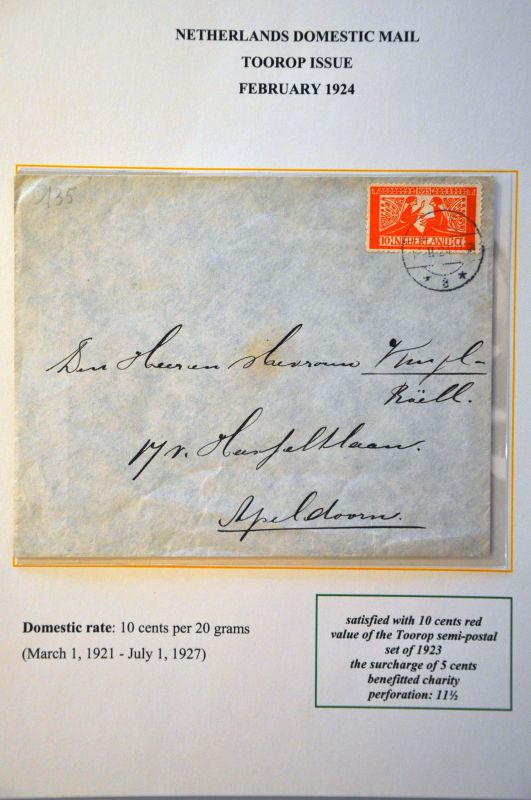 NETHERLANDS DOMESTIC MAIL
TOOROP ISSUE
FEBRUARY 1924
135
1923
10 NEDERLAND CT
8
Den Heeren Mevrouw
Röell.
17 v. Hasseltlaan.
Apeldoorn.
Domestic rate: 10 cents per 20 grams
(March 1, 1921 - July 1, 1927)
satisfied with 10 cents red
value of the Toorop semi-postal
set of 1923
the surcharge of 5 cents
benefitted charity
perforation: 11½